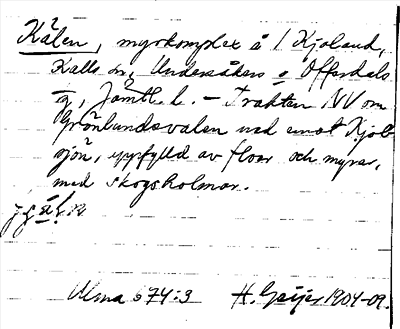 Kälen, myrkomplex å / Kjoland,
Kalls sn, Undersåkers o Offerdals
tg, Jämtl. l. – Trakten NV om
Grönlundsvalen ned emot Kjol-
sjön, uppfylld av floar och myrar,
med skogsholmar.
Ulma 674:3 H. Geijer 1904-09.